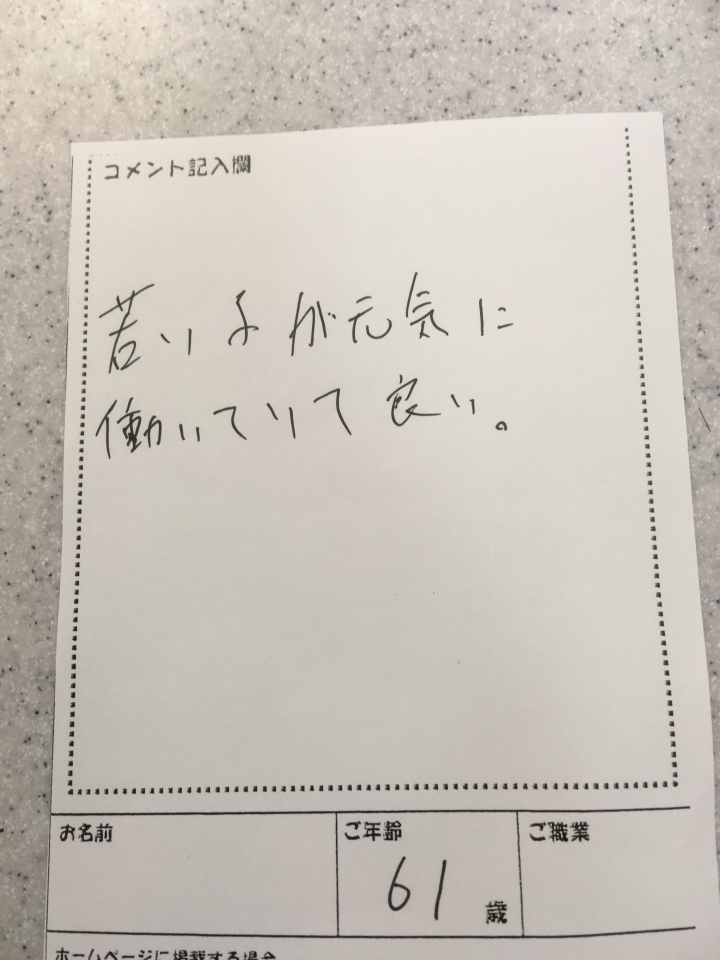 コメント記入欄
若い子が元気に
働いていて良い。
お名前
ご年齢
ご職業
61
歳
ホームページに掲載する場合